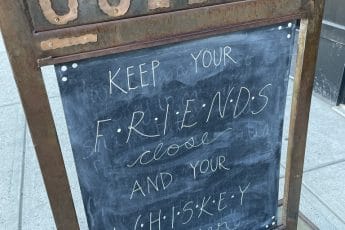 KEEP YOUR
F·R·I·E·N·D·S
close
AND YOUR
W·H·I·S·K·E·Y